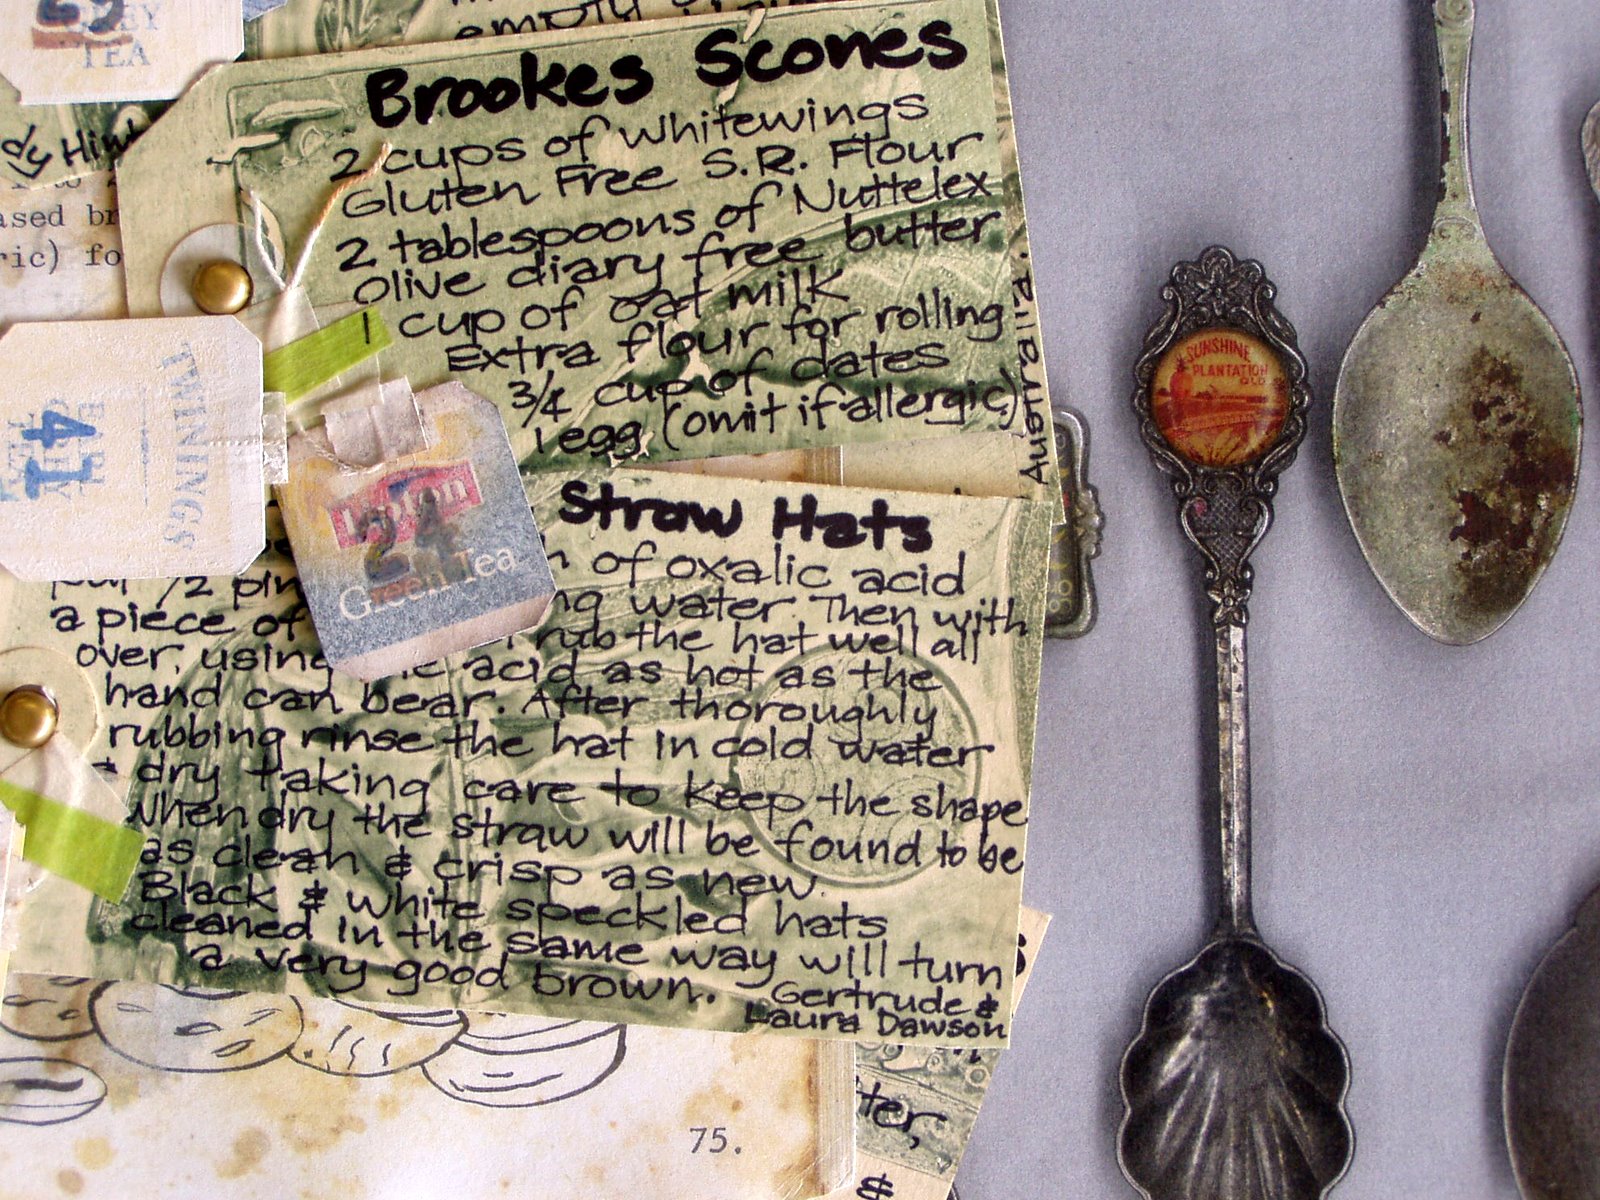 TEA
empty
dy Hint
ased br
ric) fo
Brookes Scones
2 cups of Whitewings
Gluten Free S.R. Flour
2 tablespoons of Nuttelex
olive diary free butter
1 cup of oat milk
Extra flour for rolling
3/4 cup of dates
1 egg (omit if allergic)
TWININGS
41
Lipton
24
Green Tea
Straw Hats
of oxalic acid
1/2 pin
water. Then with
a piece of
rub the hat well all
over, using
acid as hot as the
hand can bear. After thoroughly
rubbing rinse the hat in cold water
& dry taking care to keep the shape
When dry the straw will be found to be
as clean & crisp as new.
Black & white speckled hats
cleaned in the same way will turn
a very good brown.
Gertrude &
Laura Dawson
75.
tter,
&
SUNSHINE
PLANTATION
QLD